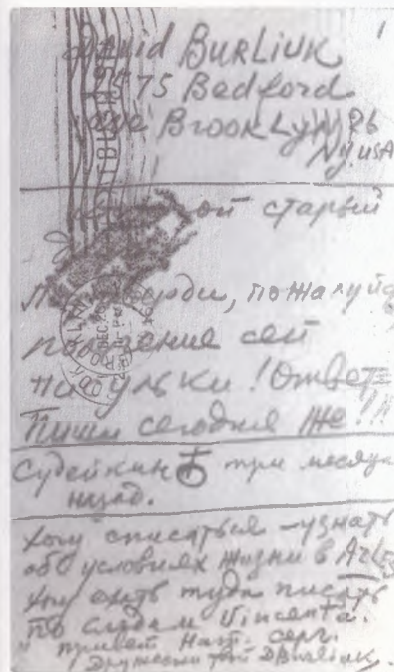 1
David BURLIUK
2575 Bedford
ave BROOKLYN 26
NY. USA
старый
пожалуйста
сей
писульки! Ответ=
Пиши сегодня же!!!
Судейкин три месяца
назад.
Хочу списаться - узнать
об условиях жизни в Arles
Хочу ехать туда писать
по следам Vincent'а.
привет Нат. Серг.
Дружески твой DBurliuk.